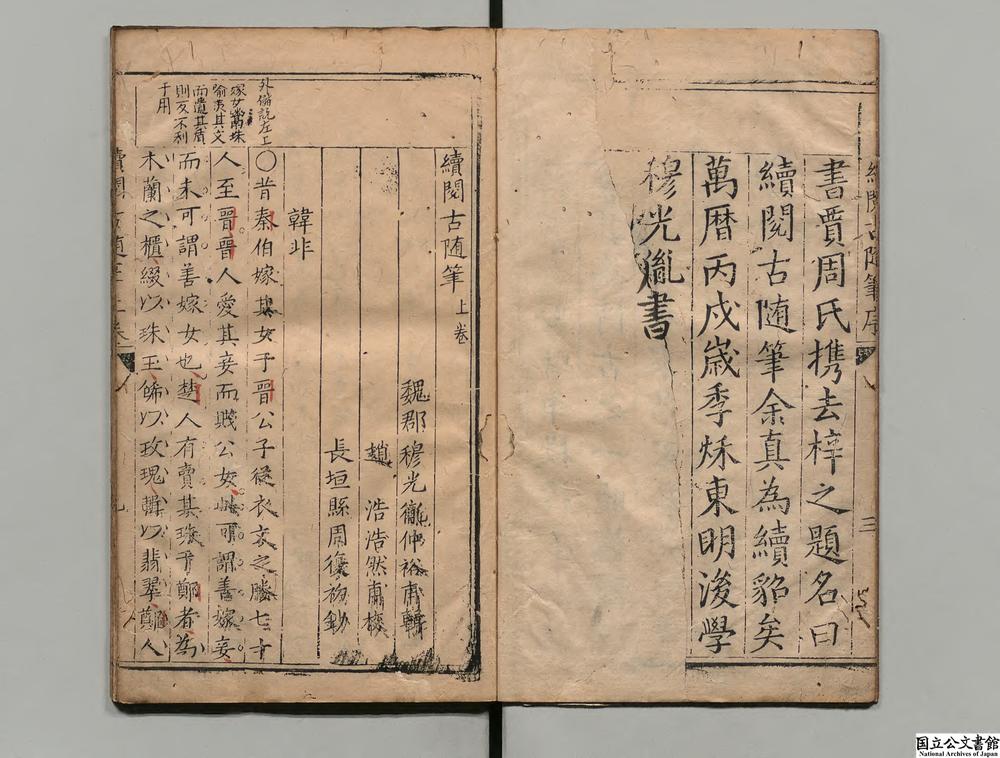 書賈周氏携去梓之題名曰
續閱古随筆余真為續貂矣
萬曆丙戌歲季秌東明後學
穆光胤書
續閱古随筆序
三
續閱古随筆 上卷
魏郡穆光胤仲裕甫輯
趙 浩浩然甫校
長垣縣周
韓非
外儲説左上
〇昔秦伯嫁其女于晋公子從衣衣之媵七十
人至晋晋人愛其妾而賤公女此可謂善嫁妾
而未可謂善嫁女也楚人有賣其珠于鄭者為
木蘭之櫃綴以珠玉餙以玫瑰輯以翡翠鄭人
嫁女鬻珠
喻爽其文
而遺其質
則反不利
于用
續閱古随筆上卷